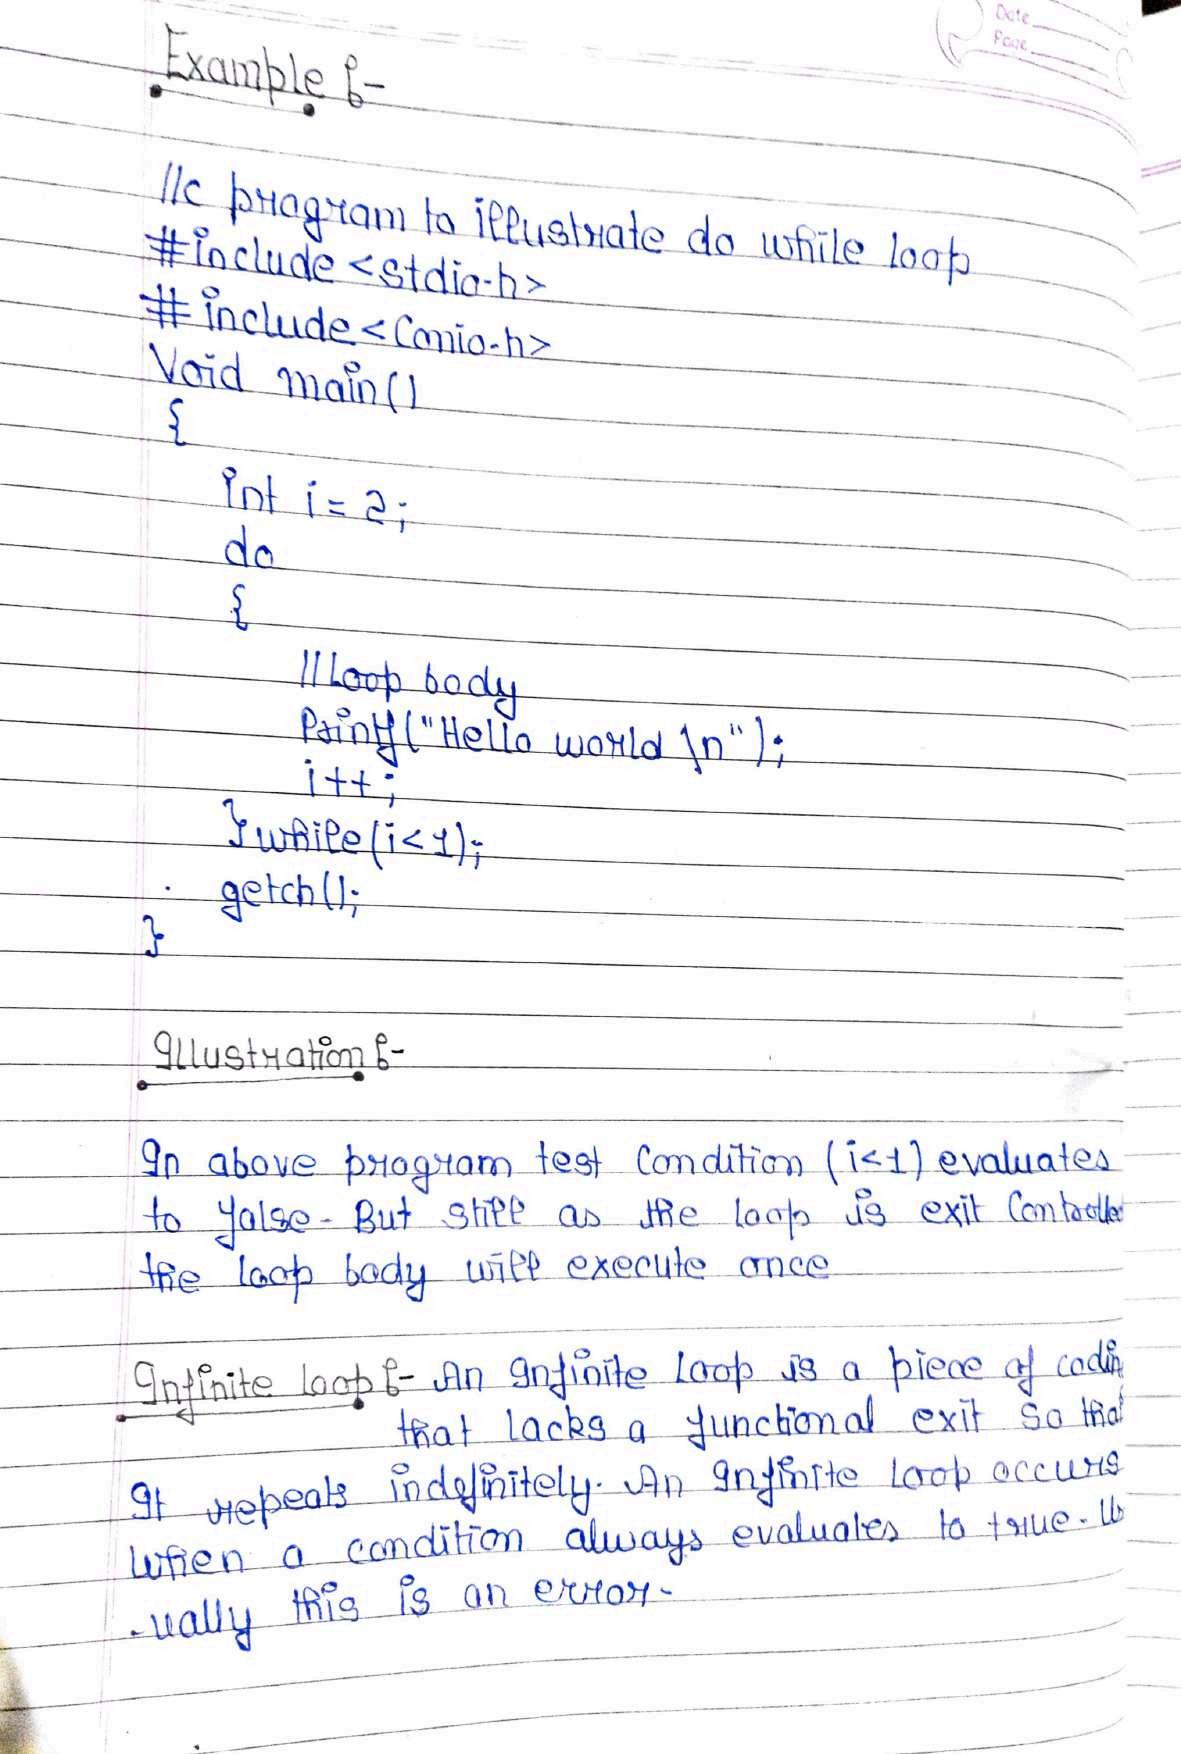 Date
Page
Example :-
//c program to illustrate do while loop
#include <stdio.h>
# include <Conio.h>
Void main()
{
int i = 2;
do
{
//Loop body
Printf("Hello world \n");
i++;
}while(i<1);
getch();
}
Illustration :-
In above program test Condition (i<1) evaluates
to false. But still as the loop is exit Controlled
the loop body will execute once
Infinite loop :- An Infinite Loop is a piece of codin
that lacks a functional exit So that
It repeats indefinitely. An Infinite Loop occurs
When a condition always evaluates to true. Us
-ually this is an error.